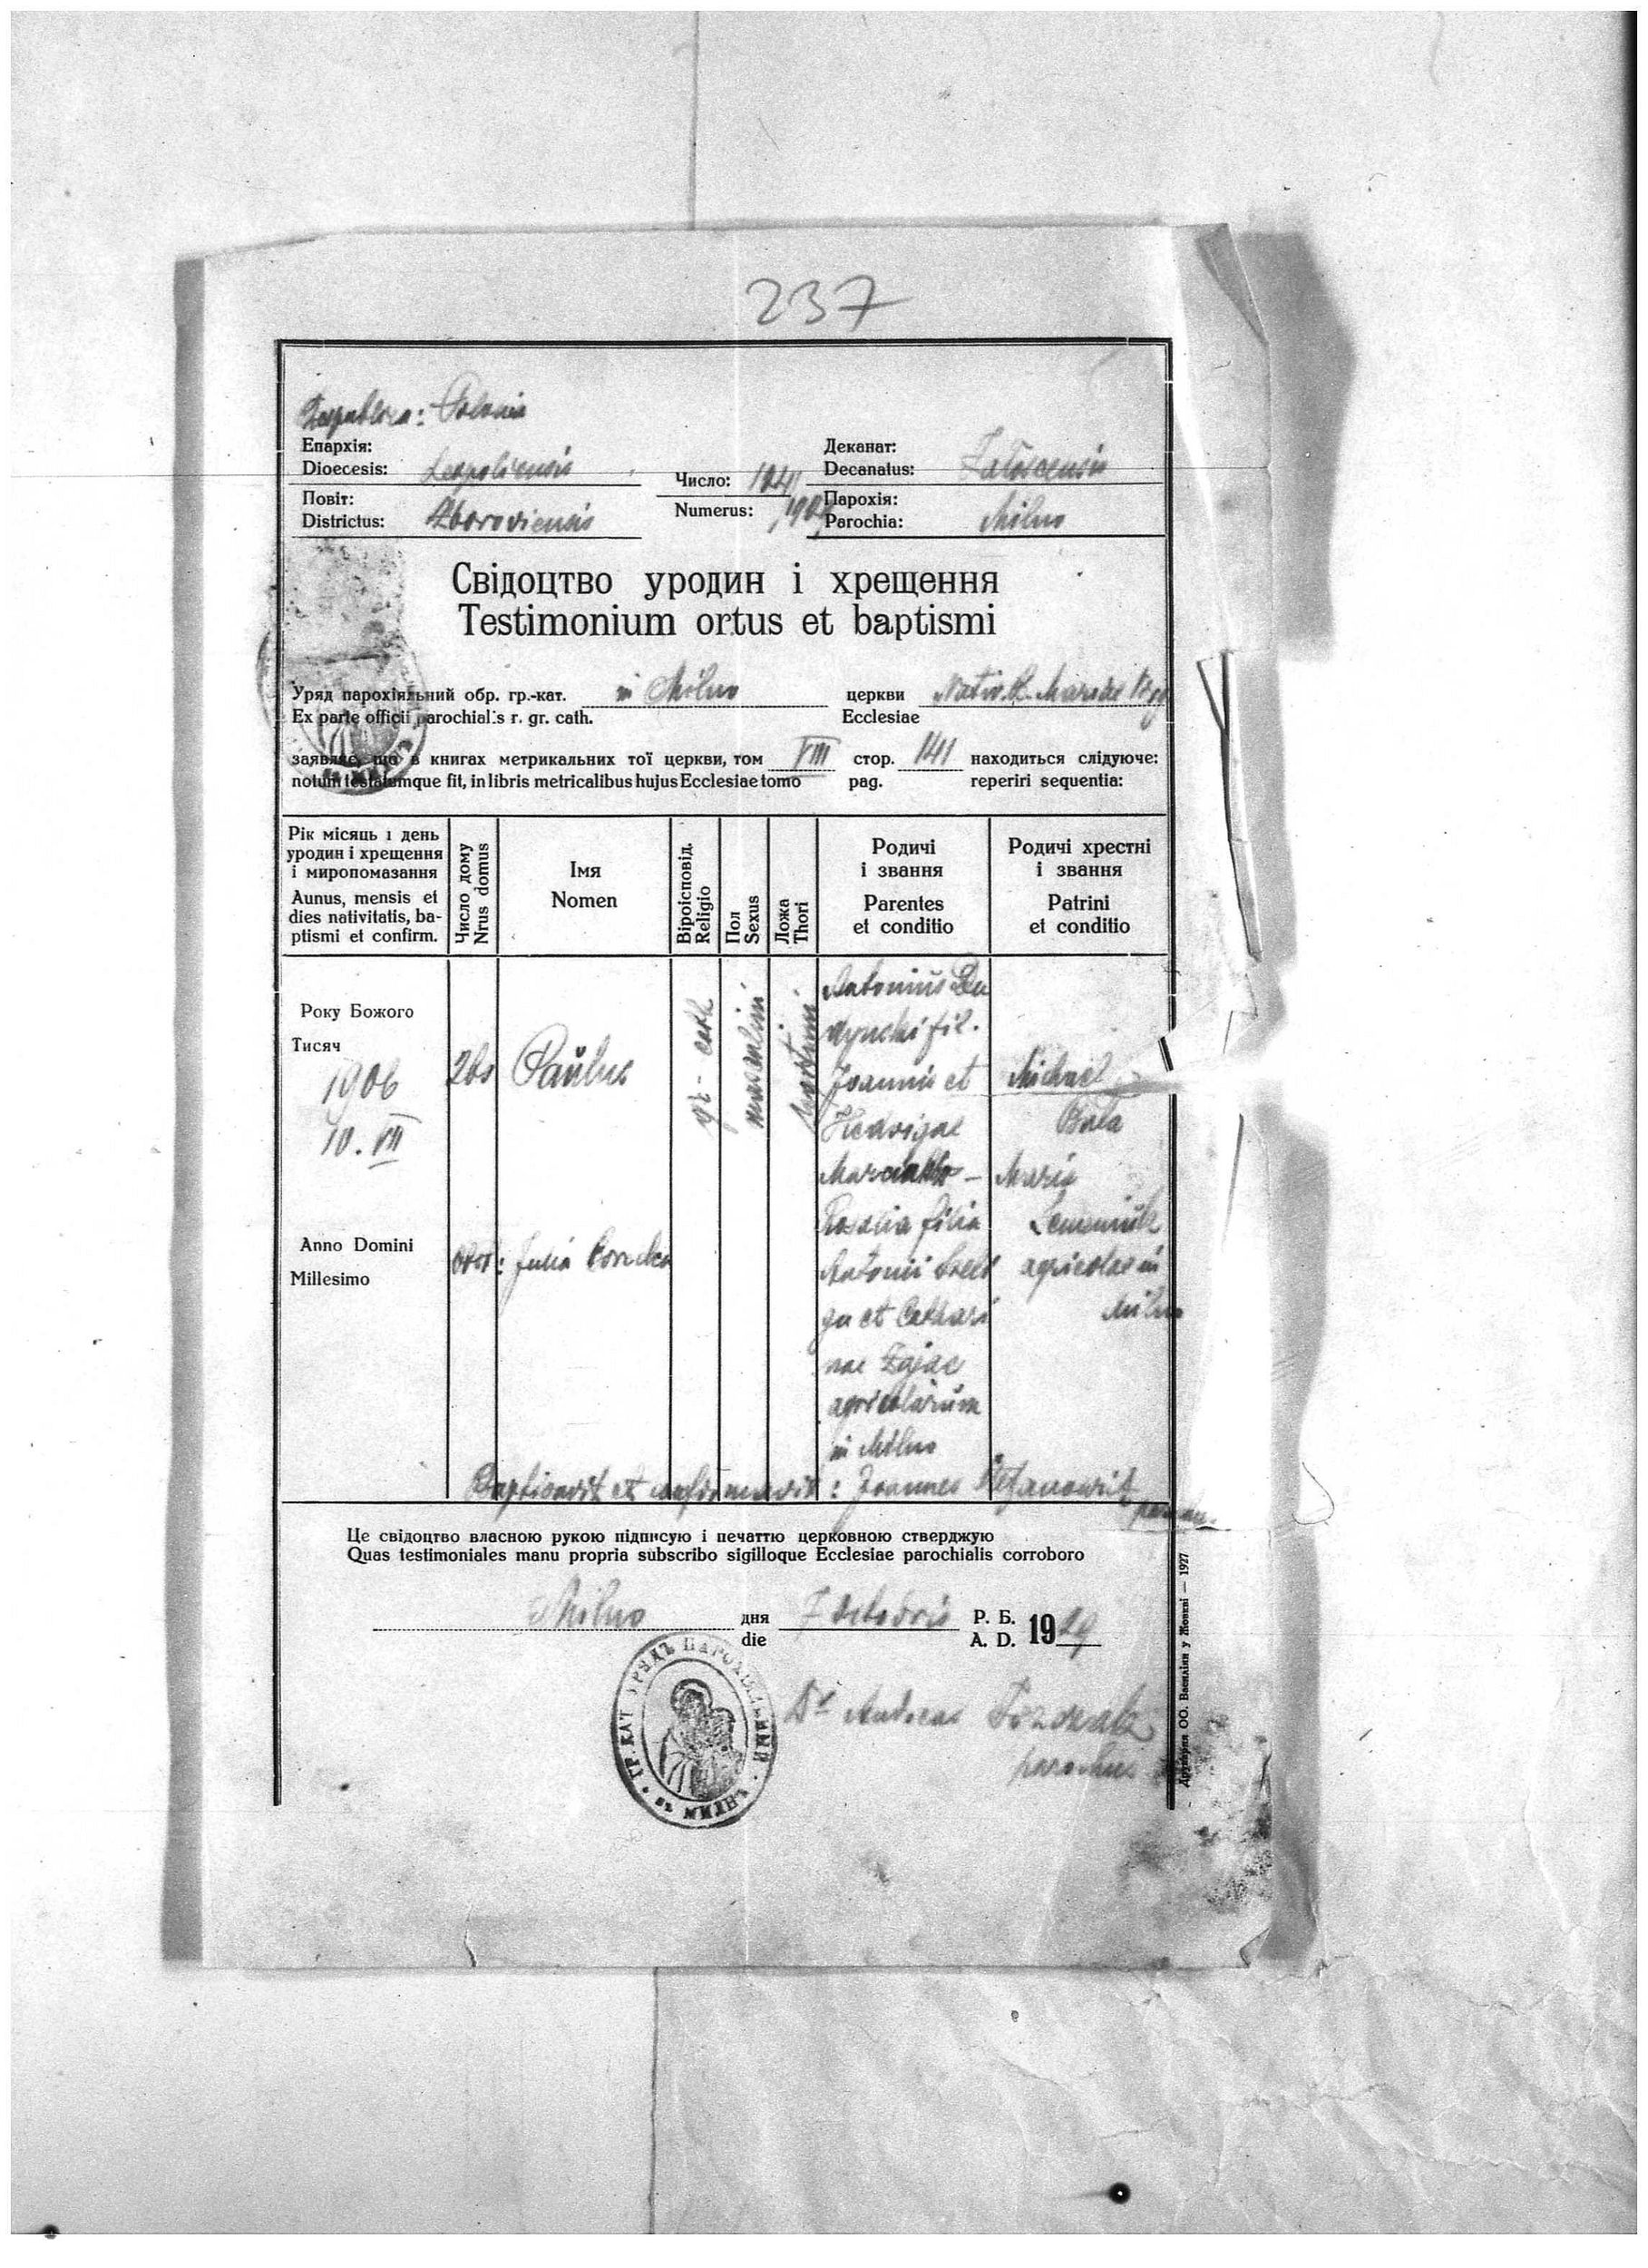 237
Respublica: Polonia
Епархія:
Dioecesis: Leopoliensis
Повіт:
Districtus: Zboroviensis
Число: 104
Numerus: 1929
Деканат:
Decanatus: Zaloscensis
Парохія:
Parochia: Milno
Свідоцтво уродин і хрещення
Testimonium ortus et baptismi
Уряд парохіяльний обр. гр.-кат. in Milno церкви Nativ. B. Mariae Vrg
Ex parte officii parochialis r. gr. cath. Ecclesiae
заявляє, що в книгах метрикальних тої церкви, том VIII стор. 141 находиться слідуюче:
notum testatumque fit, in libris metricalibus hujus Ecclesiae tomo pag. reperiri sequentia:
Рік місяць і день уродин і хрещення і миропомазання
Aunus, mensis et dies nativitatis, baptismi et confirm.
Число дому
Nrus domus
Імя
Nomen
Віроісповід.
Religio
Пол
Sexus
Ложа
Thori
Родичі і звання
Parentes et conditio
Родичі хрестні і звання
Patrini et conditio
Року Божого
Тисяч
1906
10. VII
Anno Domini
Millesimo
Paŭlus
obst: Julia
gr-cath
masculini
Antonius Du
dynski fil.
Joannis et
Hedvigae
Rosalia filia
Antonii
gu et Cathari
nae Zajac
agricolarŭm
in Milno
Michael
Bala
Maria
agricolae in
Milno
Baptisavit et confirmavit: Joannes Stefanowicz
Це свідоцтво власною рукою підписую і печаттю церковною стверджую
Quas testimoniales manu propria subscribo sigilloque Ecclesiae parochialis corroboro
Milno дня 7 octobris Р. Б.
die А. D. 1929
ГР. КАТ. УРЯДЪ ПАРОХІЯЛЬНЫЙ въ МИЛНѢ
Dr Andreas
parochus
Друкарня ОО. Василіян у Жовкві — 1927